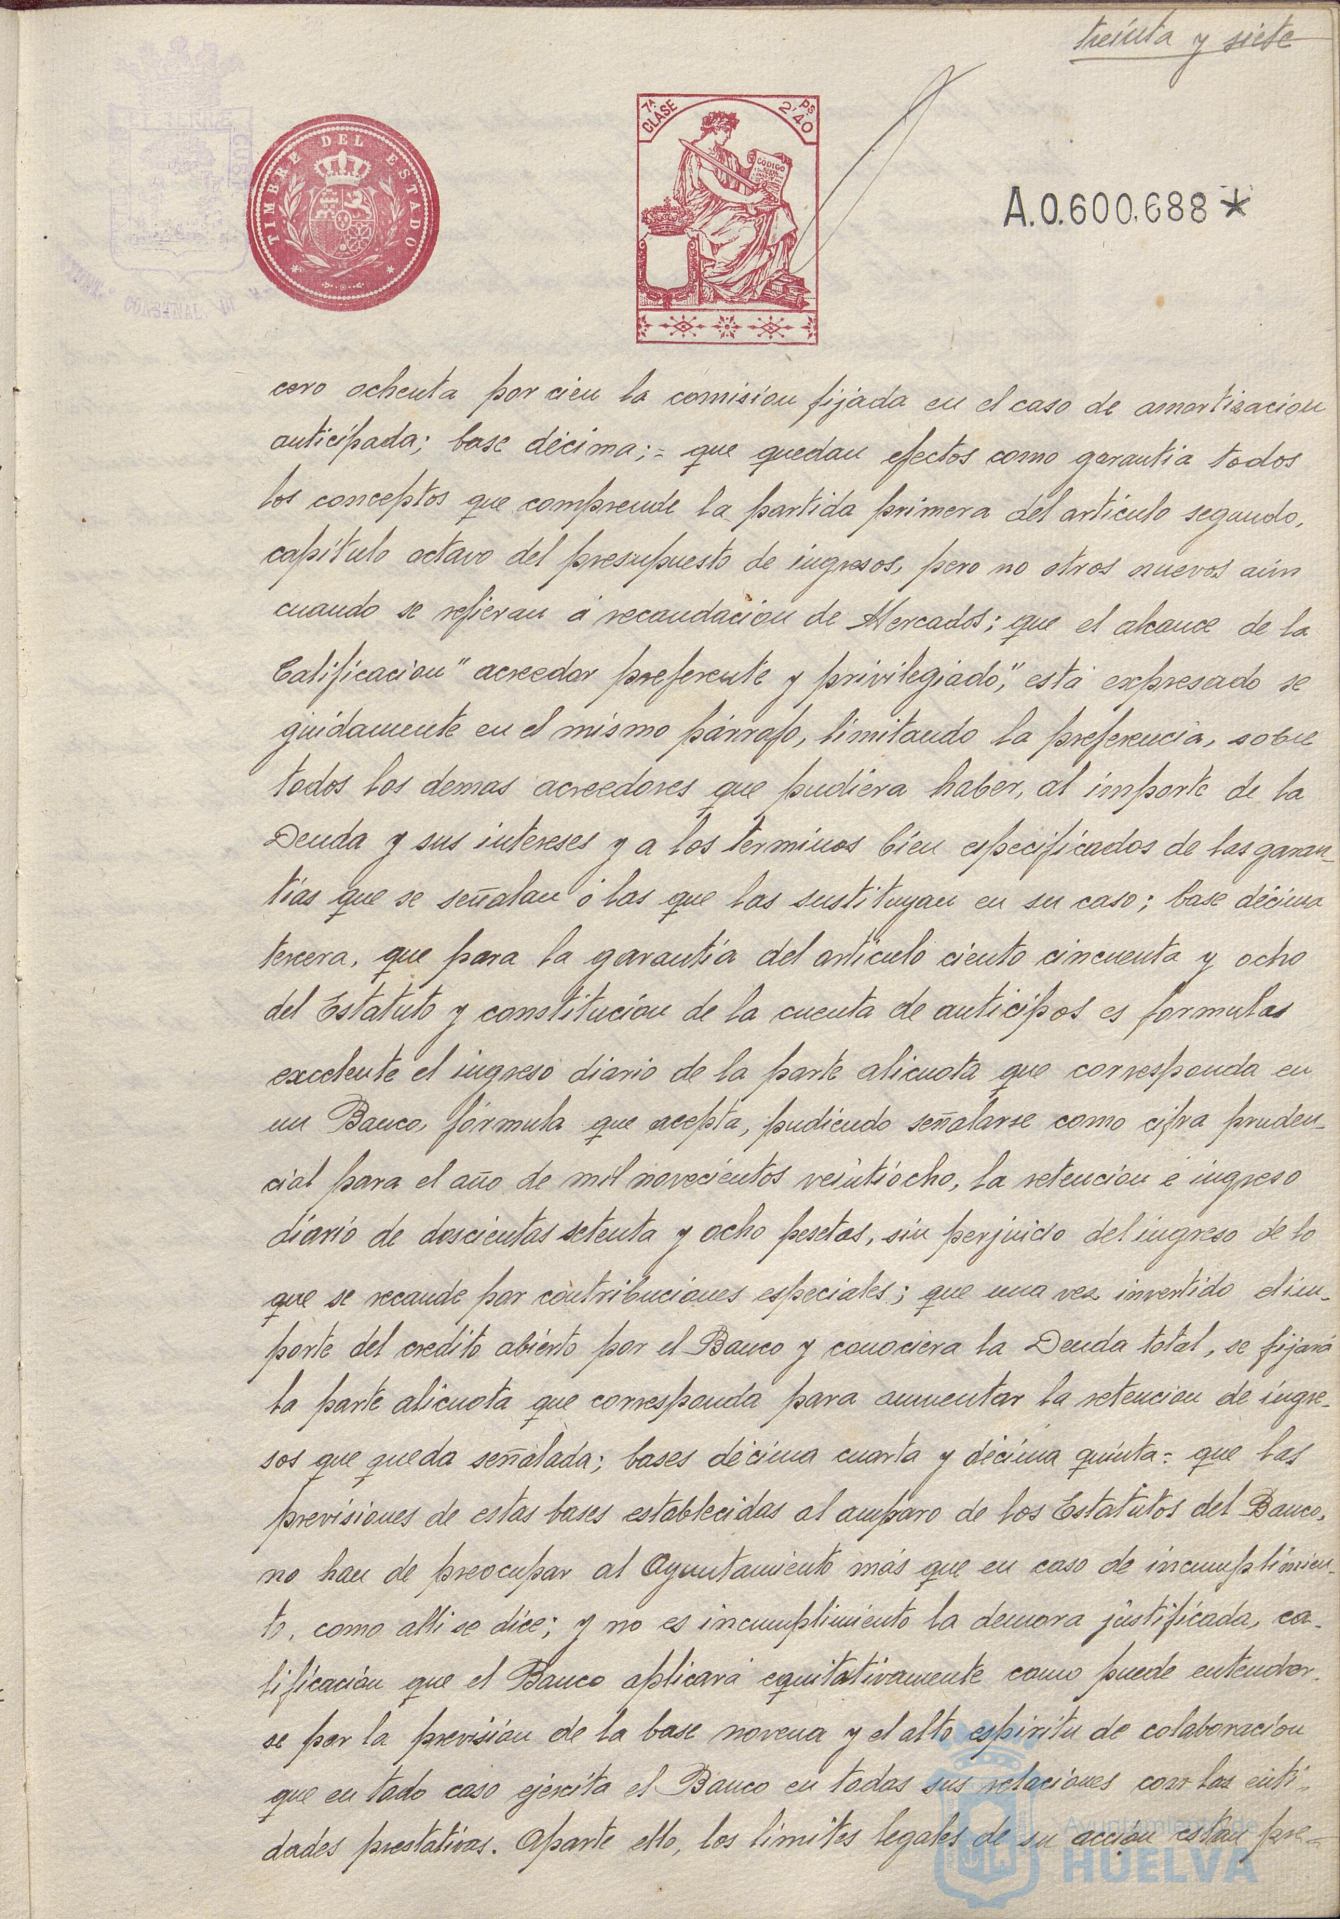 treinta y siete
TIMBRE DEL ESTADO
7ª CLASE
2'40 Ps
CODIGO
A.0.600.688*
cero ochenta por cien la comisión fijada en el caso de amortizacion
anticipada; base décima;= que quedan efectos como garantia todos
los conceptos que comprende la partida primera del artículo segundo,
capítulo octavo del presupuesto de ingresos, pero no otros nuevos aún
cuando se refieran á recaudacion de Mercados; que el alcance de la
Calificacion "acreedor preferente y privilegiado", está expresado se
guidamente en el mismo párrafo, limitando la preferencia, sobre
todos los demas acreedores que pudiera haber, al importe de la
Deuda y sus intereses y a los terminos bien especificados de las garan-
tías que se señalan ó las que las sustituyan en su caso; base décima
tercera, que para la garantía del artículo ciento cincuenta y ocho
del Estatuto y constitución de la cuenta de anticipos es formulas
excelente el ingreso diario de la parte alicuota que corresponda en
un Banco, fórmula que acepta, pudiendo señalarse como cifra pruden-
cial para el año de mil novecientos veintiocho, la retencion é ingreso
diario de doscientas setenta y ocho pesetas, sin perjuicio del ingreso de lo
que se recaude por contribuciones especiales; que una vez invertido el im-
porte del credito abierto por el Banco y conociera la Deuda total, se fijará
la parte alicuota que corresponda para aumentar la retencion de ingre-
sos que queda señalada; bases décima cuarta y décima quinta= que las
previsiones de estas bases establecidas al amparo de los Estatutos del Banco,
no han de preocupar al Ayuntamiento más que en caso de incumplimien-
to, como alli se dice; y no es incumplimiento la demora justificada, ca-
lificación que el Banco aplicará equitativamente como puede entender-
se por la previsión de la base novena y el alto espiritu de colaboracion
que en todo caso ejercita el Banco en todas sus relaciones con las enti-
dades prestativas. Aparte ello, los límites legales de su acción estan pre-
Ayuntamiento de
HUELVA